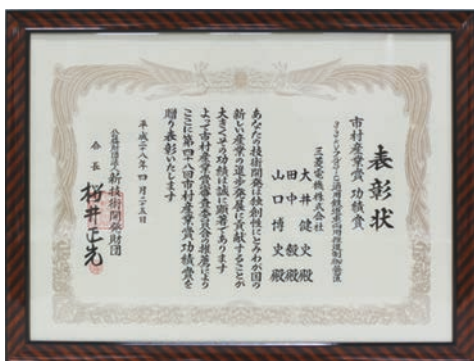 表彰状
市村産業賞 功績賞
三菱電機株式会社
大井 健史殿
田中 毅殿
山口 博史殿
あなたの技術開発は独創性にとみわが国の
新しい産業の進歩発展に貢献することが
大きくその功績は誠に顕著であります
よって市村産業賞審査委員会の推薦により
ここに第四十八回市村産業賞功績賞を
贈り表彰いたします
平成二八年 四月二五日
公益財団法人新技術開発財団
会長 桜井正光